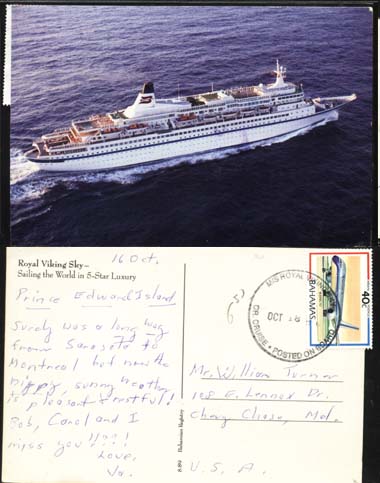 Royal Viking Sky–
Sailing the World in 5-Star Luxury
16 Oct.
Prince Edward Island
Surely was a long way
from Sarasota to
Montreal but now the
nippy, sunny weather
is pleasant & restful!
Bob, Carol and I
miss you !!?!
Love,
Va.
Bahamian Registry
M/S ROYAL
OCT 18
CRUISE • POSTED ON BOARD
BAHAMAS
40c
Mr. William Turner
108 E. Lennox Dr.
Chevy Chase, Md.
U. S. A.